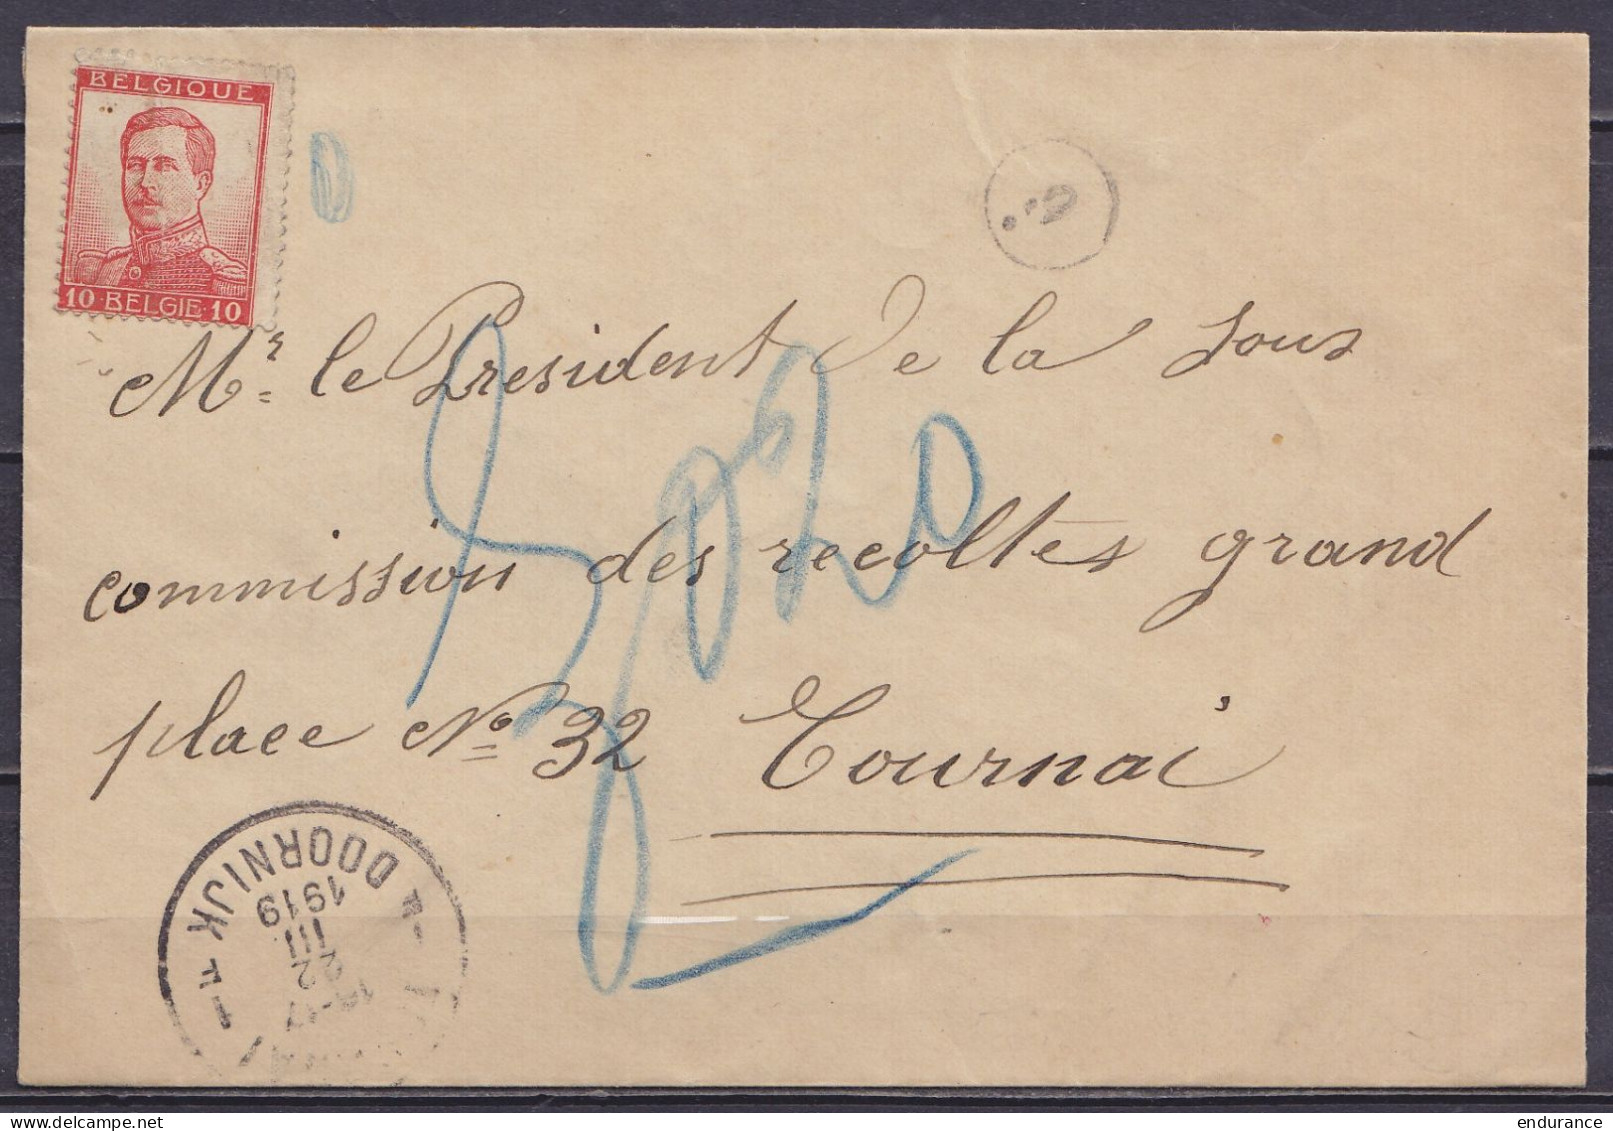 BELGIQUE
10 BELGIE 10
Mr. le President de la sous
commission des recoltes grand
place No 32 Tournai
DOORNIJK
1919
III
2
-17
1F
1F
endurance
delcampe.net